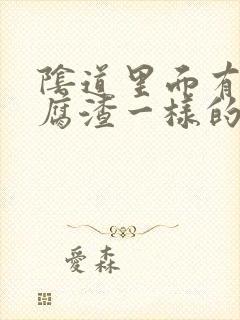 陰道里面有
腐渣一樣的
愛森